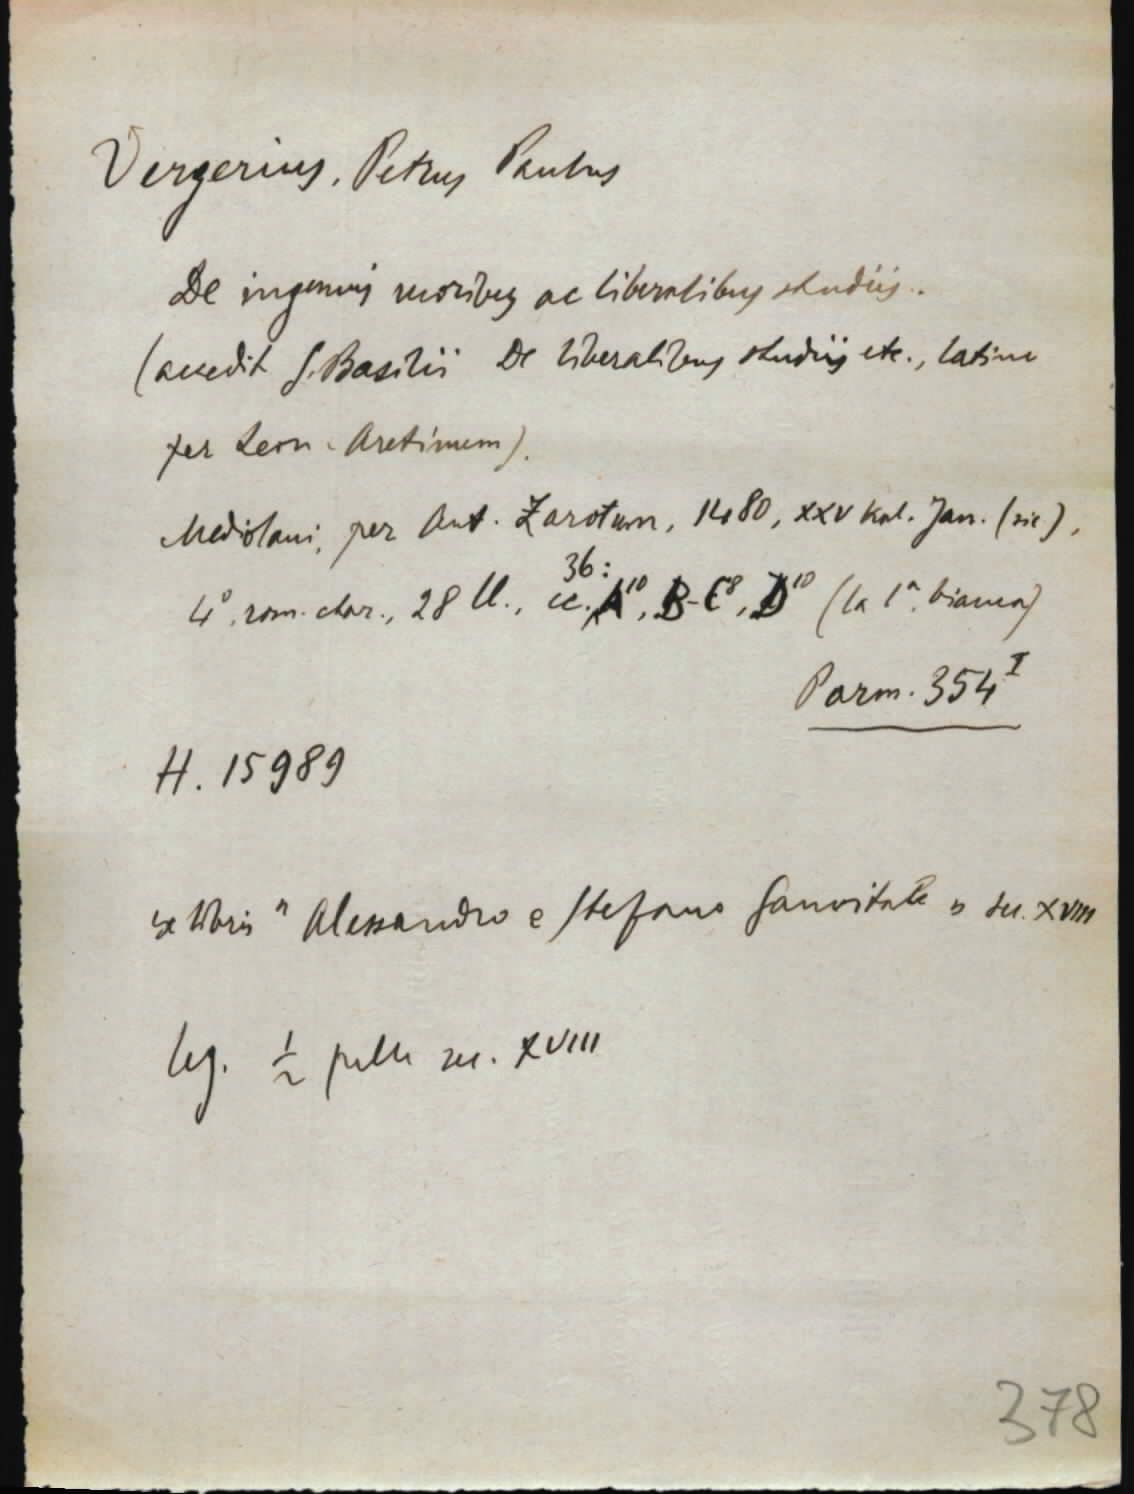 Vergerius, Petrus Paulus
De ingenuis moribus ac liberalibus studiis.
(accedit S. Basilii De liberalibus studiis etc., latine
per Leon. Aretinum).
Mediolani, per Ant. Zarotum, 1480, XXV kal. Jan. (sic),
4°, rom. char., 28 ll., cc. 36: A¹⁰, B-C⁸, D¹⁰ (la 1ª bianca)
Parm. 354ᴵ
H. 15989
ex libris "Alessandro e Stefano Sanvitale" sec. XVIII
leg. ½ pelle sec. XVIII
378